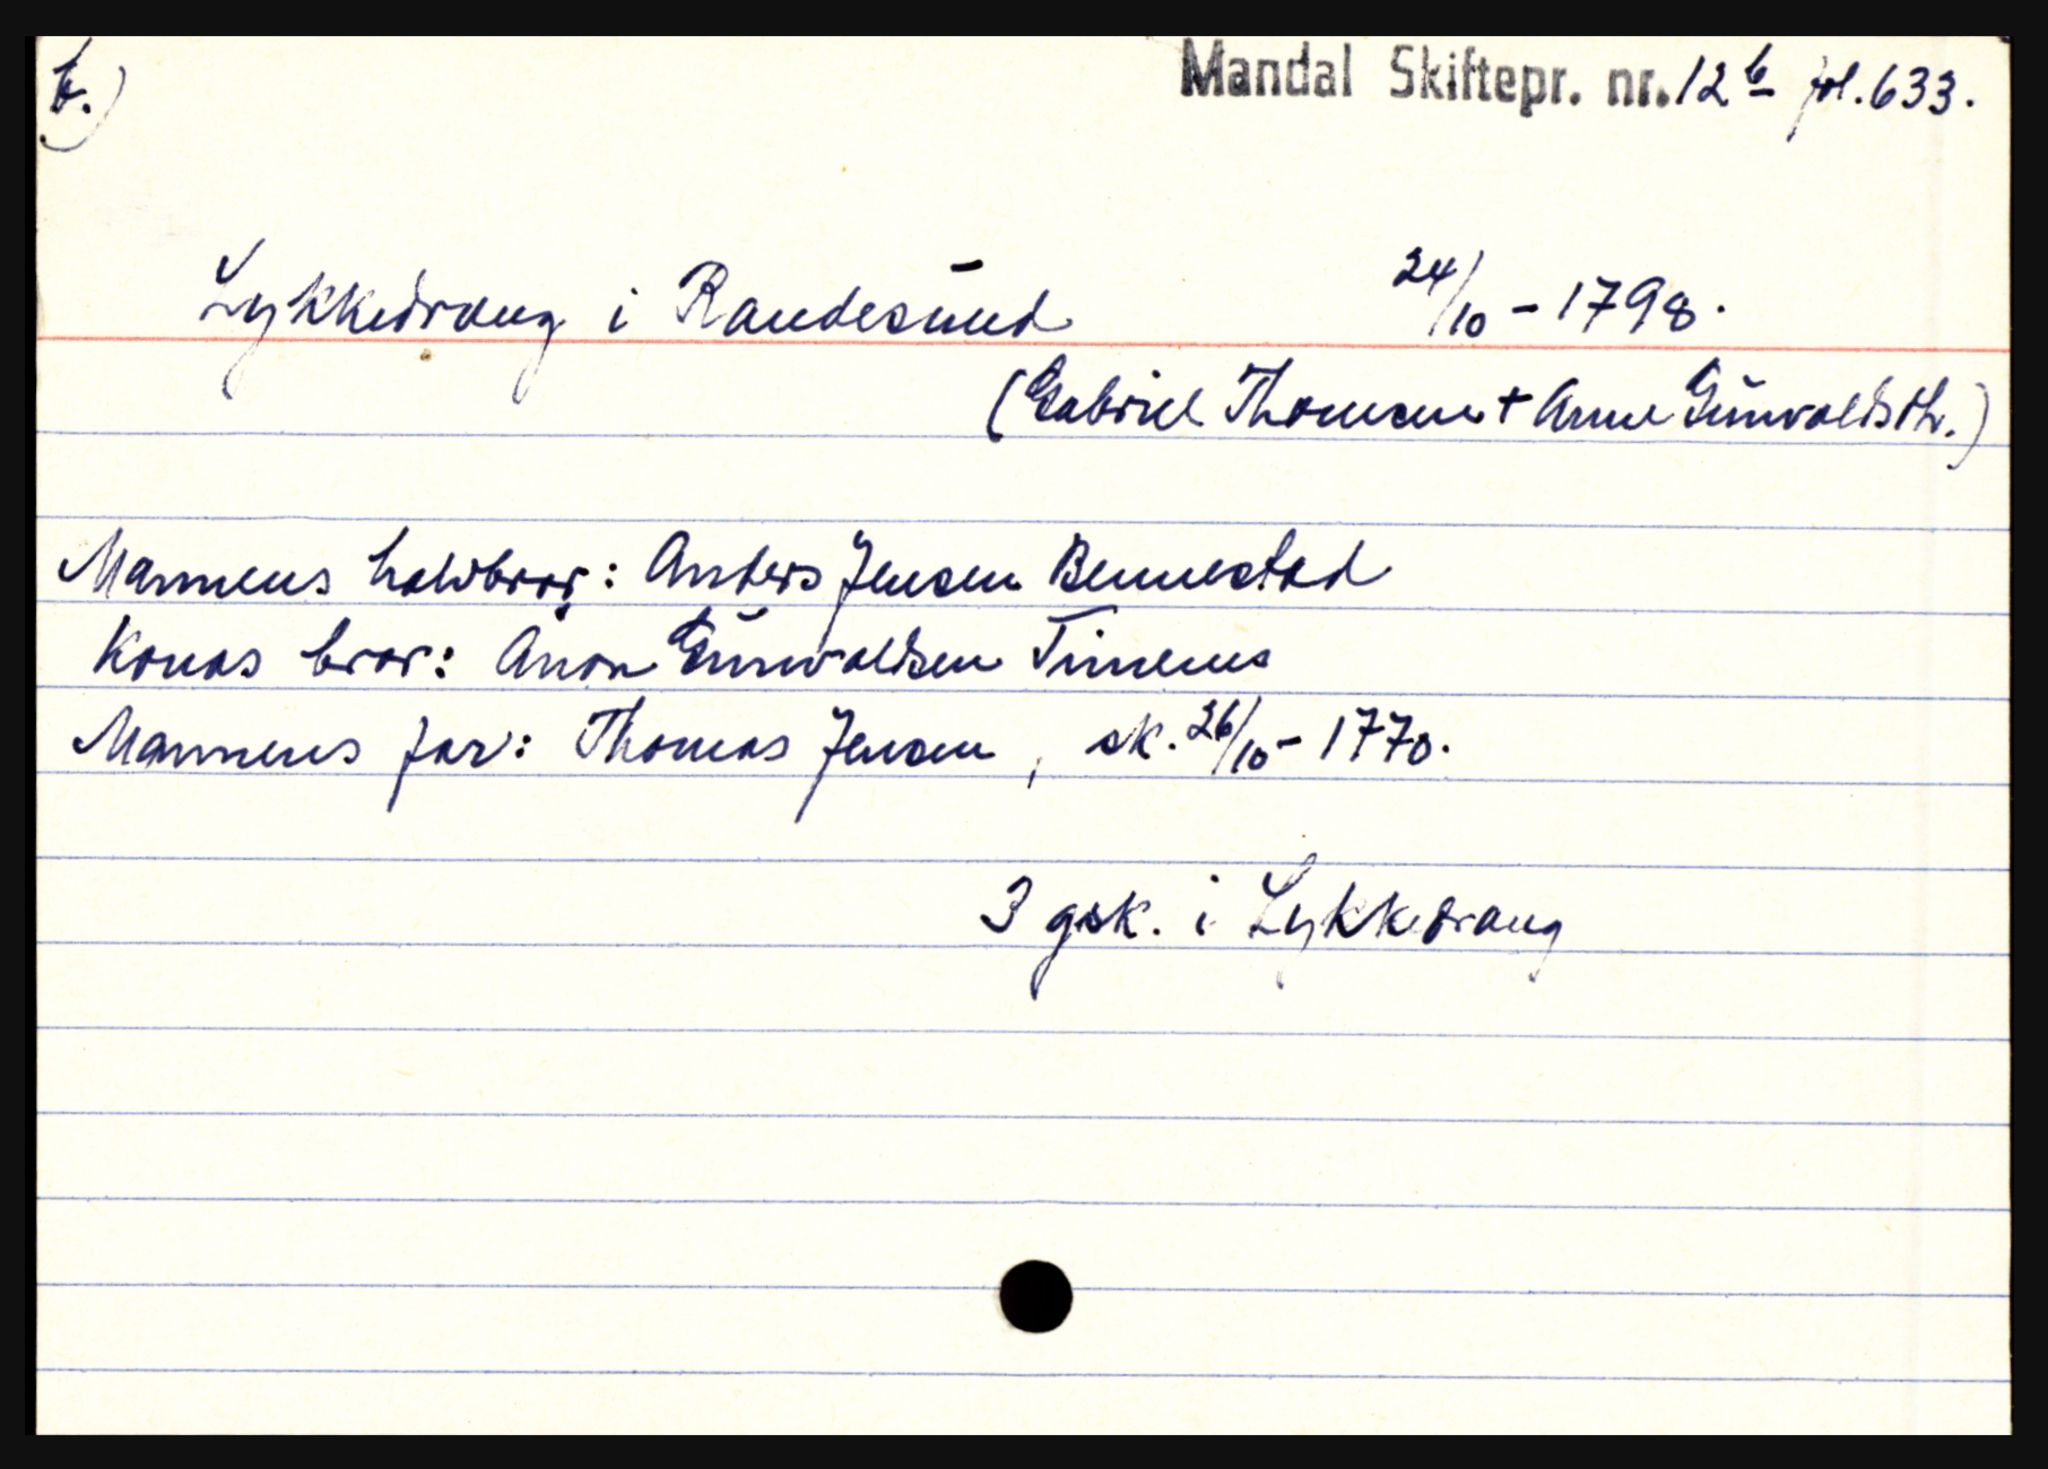 b.)
Mandal Skiftepr. nr. 12 b fol. 633.
Lykkedrang i Randesund 24/10 - 1798.
(Gabriel Thomsen + Anne Gunvaldsdtr.)
Mannens halvbror: Anders Jensen Bennestad
Konas bror: Anon Gunvaldsen Timenes
Mannens far: Thomas Jensen, sk. 26/10 - 1770.
3 gsk. i Lykkedrang